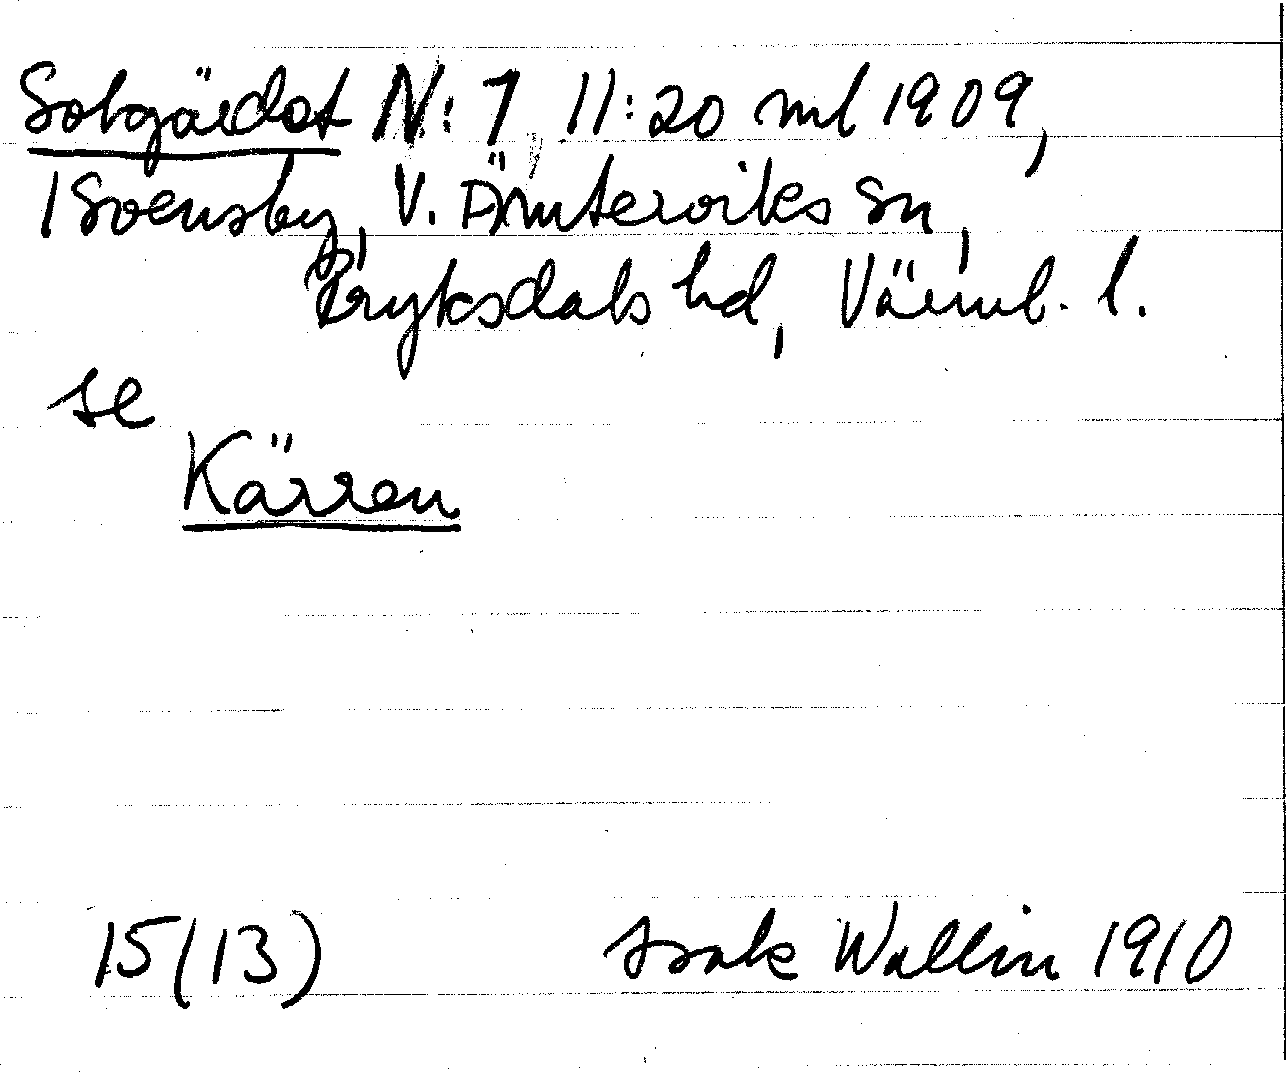 Solgärdet N:1 11:20 ml 1909,
1 Svensby, V. Ämterviks sn,
Fryksdals hd, Värml. l.
se
Kärren
15(13) Isak Wallin 1910